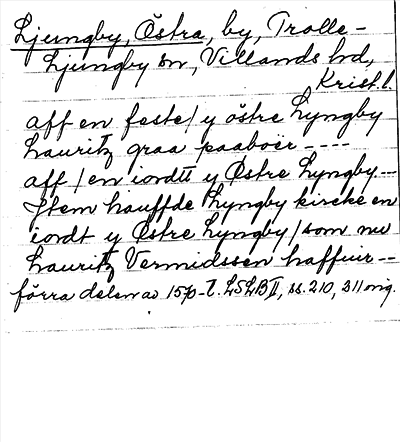 Ljungby, Östra, by, Trolle-
Ljungby sn, Villands hd,
Krist.l.
aff en feste / y östre Lyngby
Lauritz graa paaboer ----
aff / en iordtt y Østre Lyngby --
Jtem hauffde Lyngby kircke en
iordt y Østre Lyngby / som nu
Lauritz Vermidssen haffuir --
förra delen av 1570-t. LSLB II, ss. 210, 211 orig.